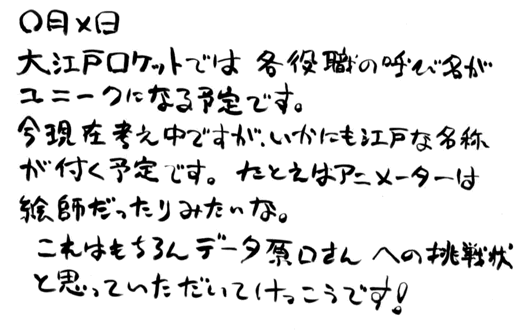 〇月×日
大江戸ロケットでは 各役職の呼び名が
ユニークになる予定です。
今現在考え中ですが、いかにも江戸な名称
が付く予定です。たとえばアニメーターは
絵師だったりみたいな。
これはもちろんデータ原口さん への挑戦状
と思っていただいてけっこうです!